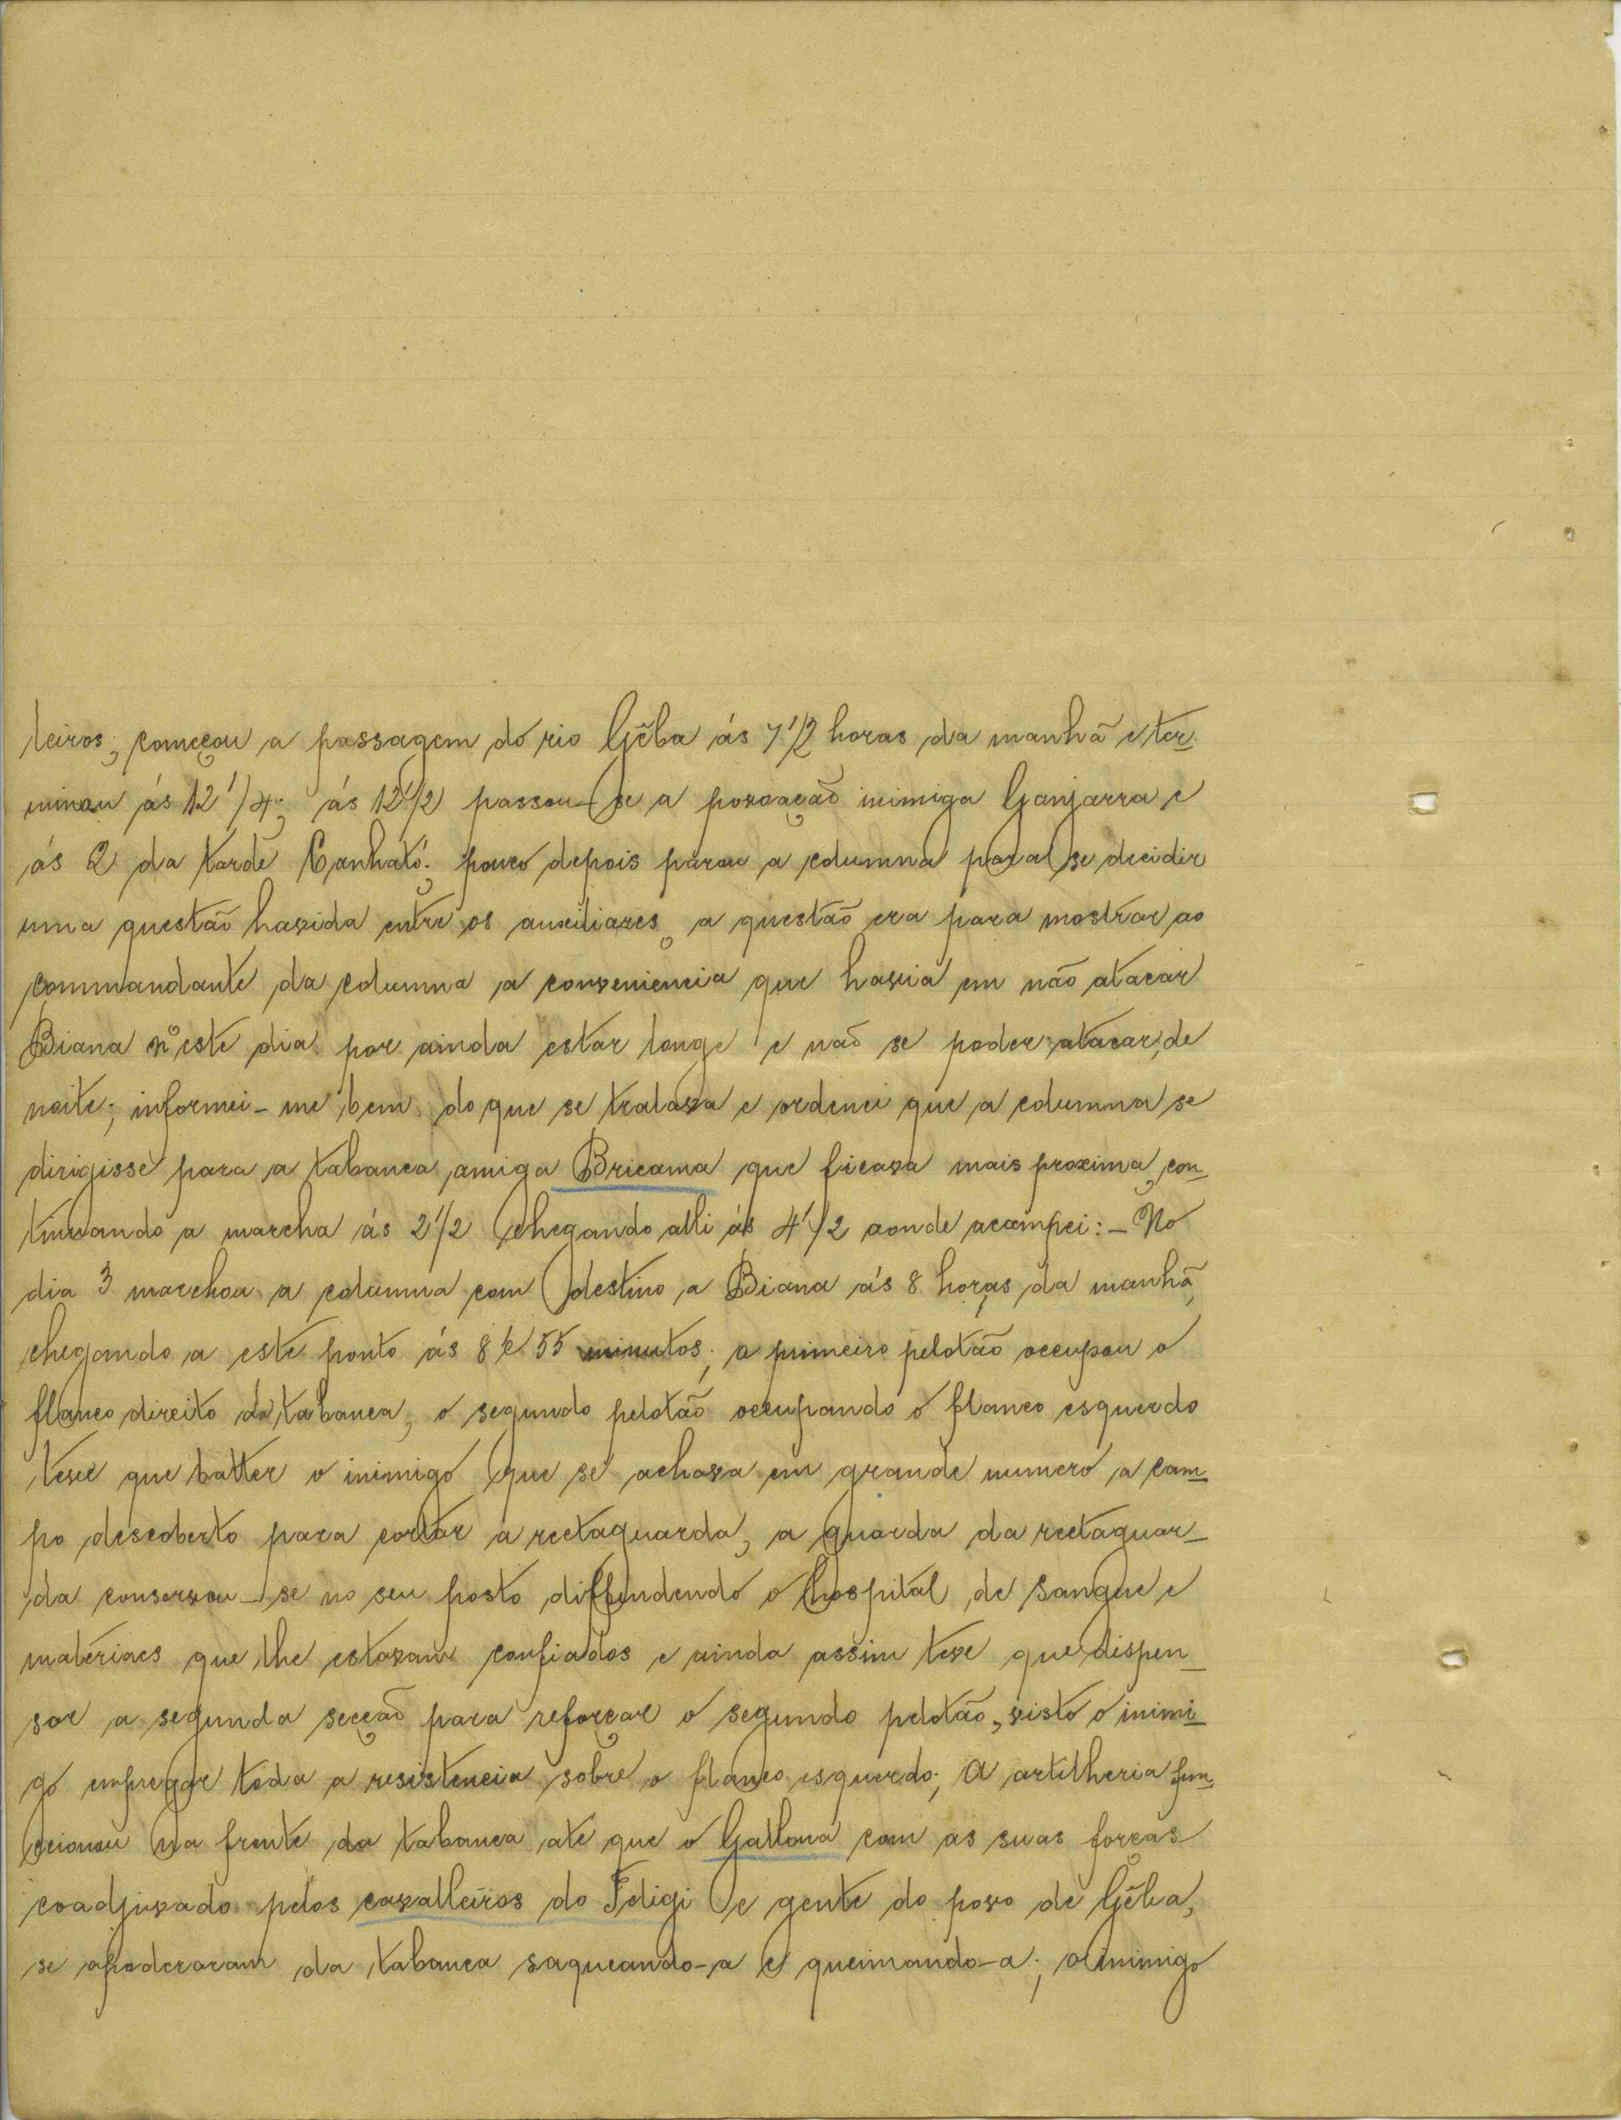 leiros; começou a passagem do rio Gêba ás 7 1/2 horas da manhã e ter-
minou ás 12 1/4; ás 12 1/2 passou-se a povoação inimiga Ganjarra e
ás 2 da tarde Canható; pouco depois parou a columna para se decidir
uma questão havida entre os auxiliares, a questão era para mostrar ao
commandante da columna a conveniencia que havia em não atacar
Biana n'este dia por ainda estar longe e não se poder atacar de
noite; informei-me bem do que se tratava e ordenei que a columna se
dirigisse para a tabanca amiga Bricama que ficava mais proxima, con-
tinuando a marcha ás 2 1/2 chegando alli ás 4 1/2 aonde acampei:- No
dia 3 marchou a columna com destino a Biana ás 8 horas da manhã,
chegando a este ponto ás 8 e 55 minutos; o primeiro pelotão occupou o
flanco direito da tabanca, o segundo pelotão occupando o flanco esquerdo
teve que batter o inimigo que se achava em grande numero a cam-
po descoberto para cortar a rectaguarda, a guarda da rectaguar-
da conservou-se no seu posto diffendendo o hospital de sangue e
materiaes que lhe estavam confiados e ainda assim teve que dispen-
sar a segunda secção para reforçar o segundo pelotão, visto o inimi-
go empregar toda a resistencia sobre o flanco esquerdo; A artilheria fun-
ccionou na frente da tabanca até que o Gallona com as suas forças
coadjuvado pelos cavalleiros do Feligi e gente do povo de Gêba,
se apoderaram da tabanca saqueando-a e queimando-a; o inimigo